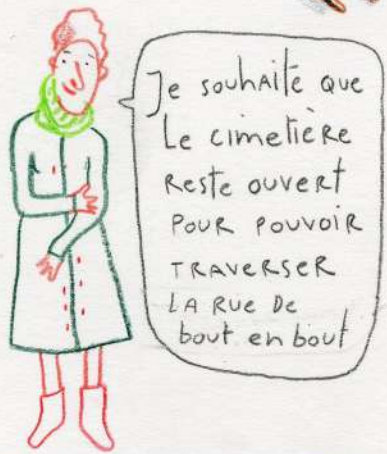 Je souhaite que
Le cimetière
Reste ouvert
POUR POUVOIR
TRAVERSER
LA RUE DE
bout en bout